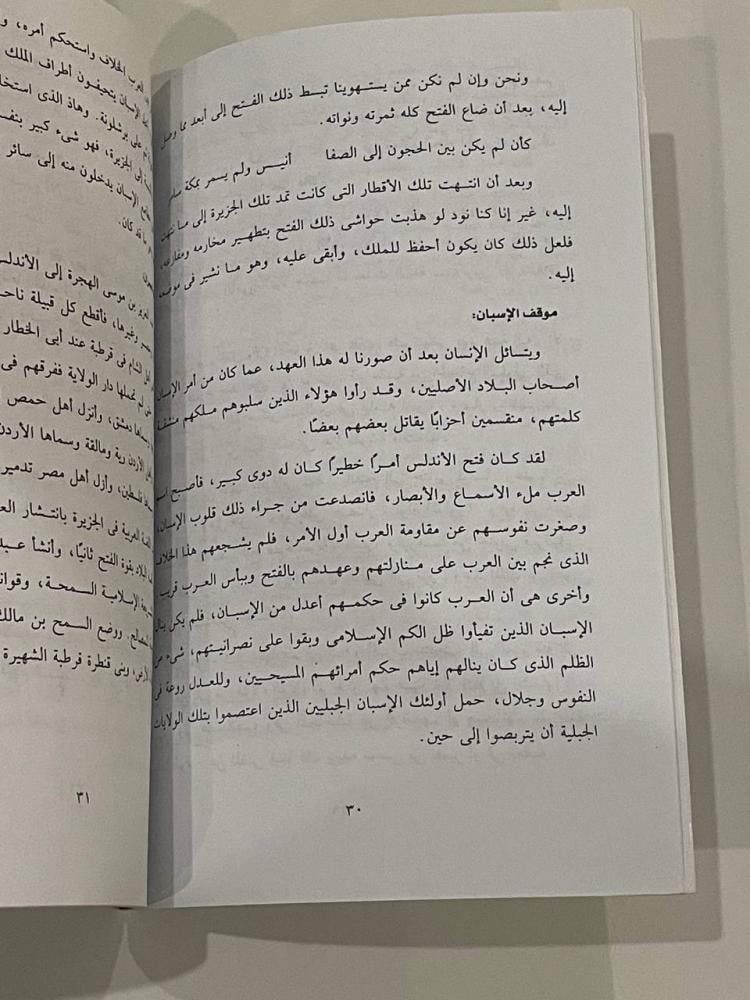 ونحن وإن لم نكن ممن يستهوينا تبط ذلك الفتح إلى أبعد مما وصل
إليه، بعد أن ضاع الفتح كله ثمرته ونواته.
كأن لم يكن بين الحجون إلى الصفا أنيس ولم يسمر بمكة سامر
وبعد أن انتهت تلك الأقطار التى كانت تمد تلك الجزيرة إلى ما انتهت
إليه، غير إنا كنا نود لو هذبت حواشى ذلك الفتح بتطهير مخارمه ومفارقه.
فلعل ذلك كان يكون أحفظ للملك، وأبقى عليه، وهو ما نشير فى موضعه
إليه.
موقف الإسبان:
ويتسائل الإنسان بعد أن صورنا له هذا العهد، عما كان من أمر الإسبان
أصحاب البلاد الأصليين، وقد رأوا هؤلاء الذين سلبوهم ملكهم منشقة
كلمتهم، منقسمين أحزابًا يقاتل بعضهم بعضًا.
لقد كان فتح الأندلس أمرًا خطيرًا كان له دوى كبير، فأصبح اسم
العرب ملء الأسماع والأبصار، فانصدعت من جراء ذلك قلوب الإسبان،
وصغرت نفوسهم عن مقاومة العرب أول الأمر، فلم يشجعهم هذا الخلاف
الذى نجم بين العرب على منازلتهم وعهدهم بالفتح وببأس العرب قريب
وأخرى هى أن العرب كانوا فى حكمهم أعدل من الإسبان، فلم يكن ينال
الإسبان الذين تفيأوا ظل الكم الإسلامى وبقوا على نصرانيتهم، شىء من
الظلم الذى كان ينالهم إياهم حكم أمرائهم المسيحيين، وللعدل روعة فى
النفوس وجلال، حمل أولئك الإسبان الجبليين الذين اعتصموا بتلك الولايات
الجبلية أن يتربصوا إلى حين.
٣٠
العرب الخلاف واستحكم أمره، و
الإسبان يتحيفون أطراف الملك
على برشلونة. وهاذ الذى استخا
إلى الجزيرة، فهو شىء كبير بنف
الإسبان يدخلون منه إلى سائر
ما قد كان.
بن موسى الهجرة إلى الأندلس
وغيرها، فأقطع كل قبيلة ناح
الشام فى قرطبة عند أبى الخطار
دار الولاية ففرقهم فى
دمشق، وأنزل أهل حمص
الأردن رية ومالقة وسماها الأردن
فلسطين، وأنزل أهل مصر تدمير
العربية فى الجزيرة بانتشار الع
البلاد بقوة الفتح ثانيًا، وأنشأ عبد
الإسلامية السمحة، وقوان
ووضع السمح بن مالك
وبنى قنطرة قرطبة الشهيرة
٣١